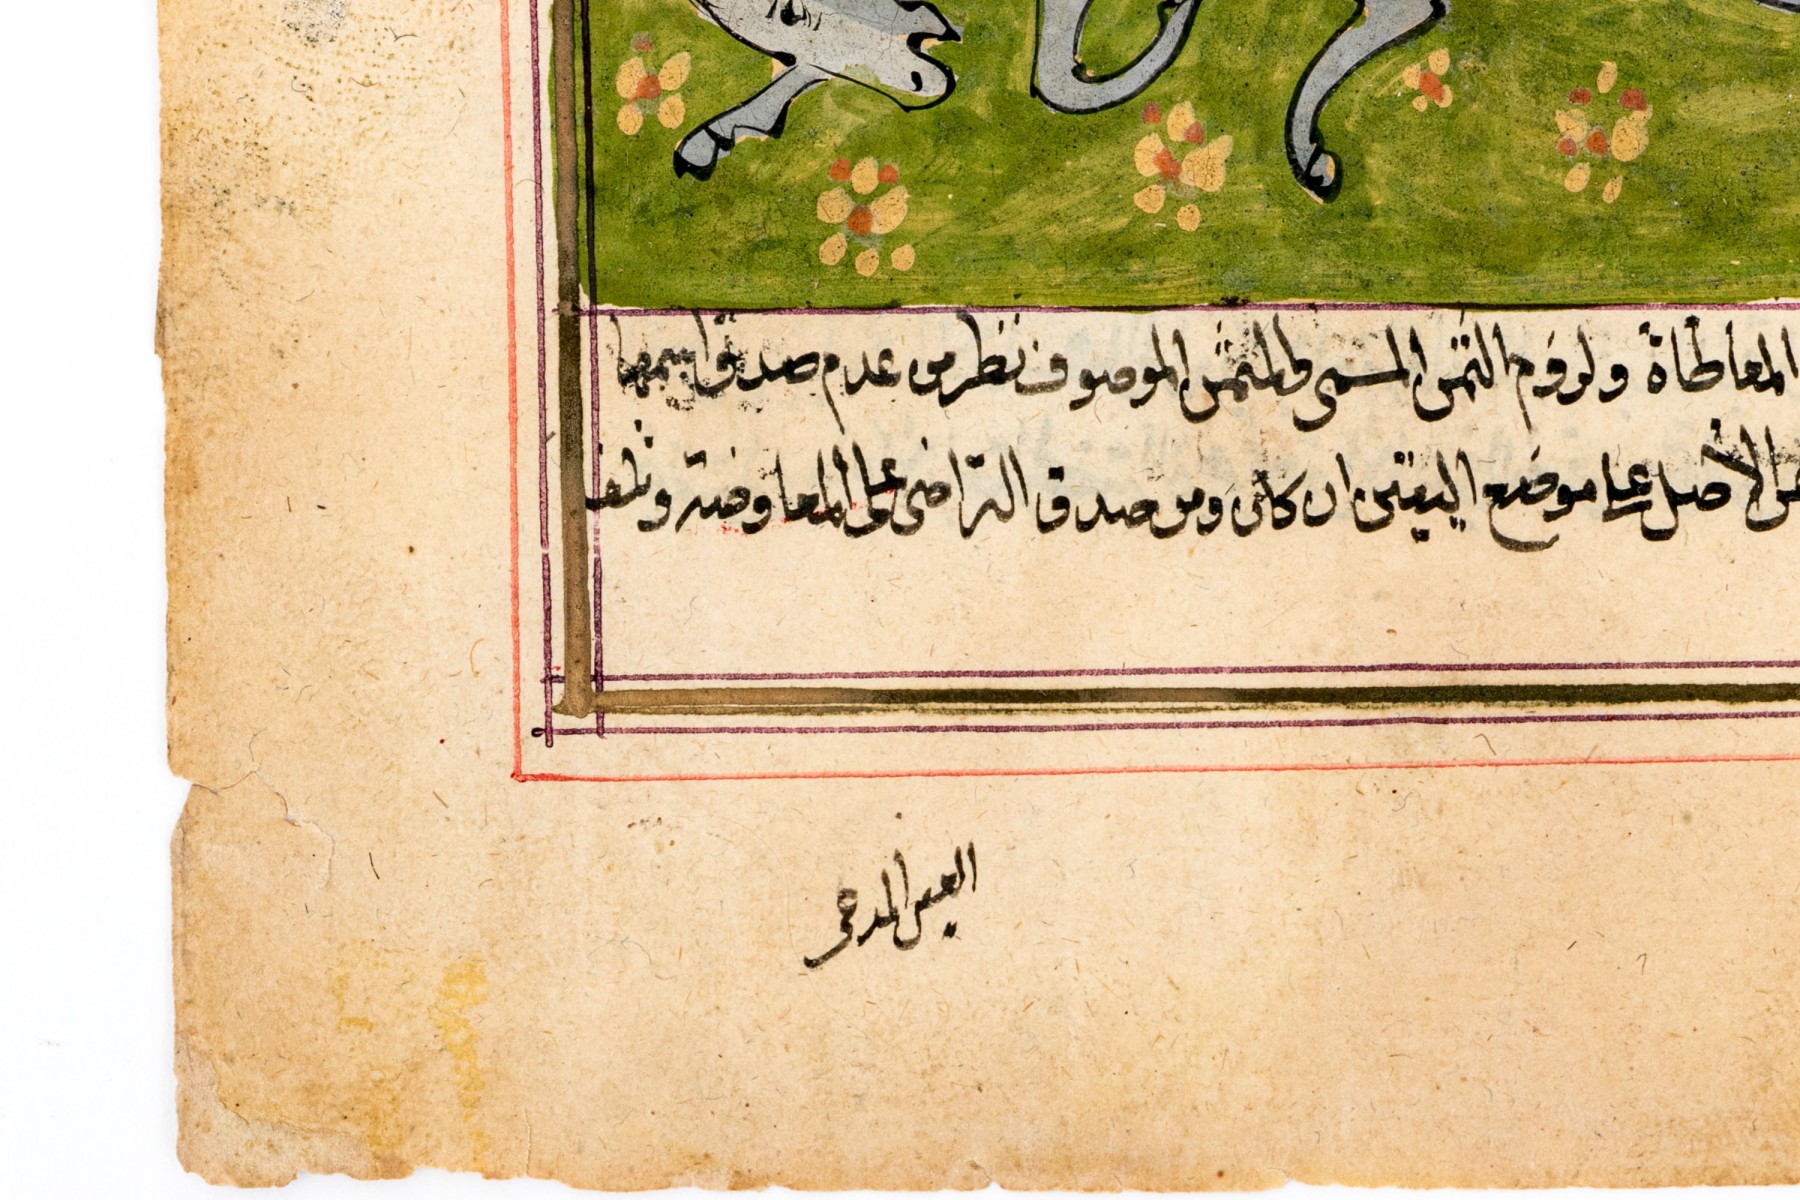 المعاطاة ولزوم الثمن المسمى والمثمن الموصوف نظر من عدم صدق اسمها
الأصل على موضع اليقين ان كان ومن صدق التراضي على المعاوضة وتلف
العين المدعى